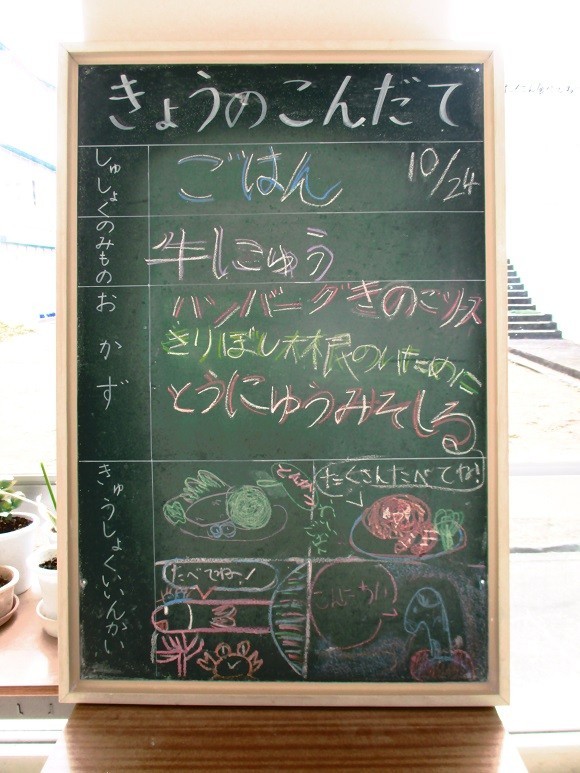 きょうのこんだて
しゅしょく
ごはん
10/24
のみもの
牛にゅう
おかず
ハンバーグきのこソース
きりぼし大根のいために
とうにゅうみそしる
きゅうしょくいいんかい
たくさんたべてね!
たべてね!
こんにちは